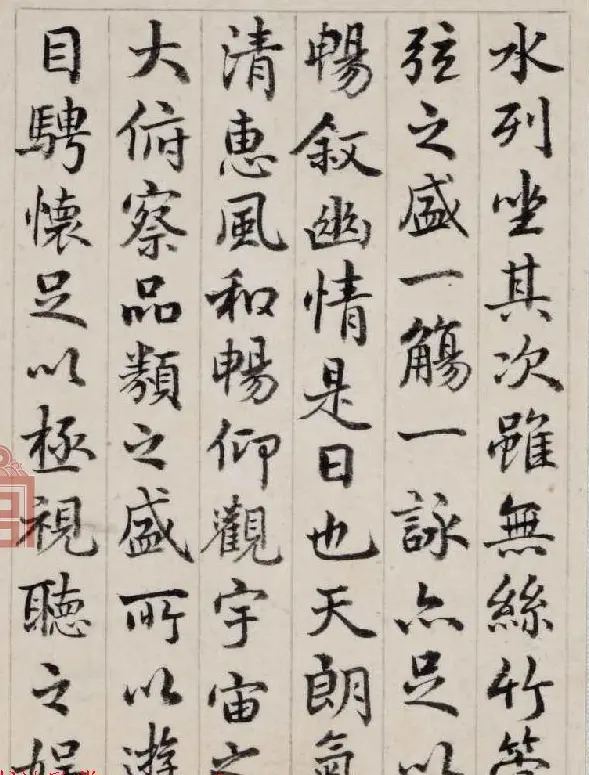 水列坐其次雖無絲竹管
弦之盛一觴一詠亦足以
暢敘幽情是日也天朗氣
清惠風和暢仰觀宇宙之
大俯察品類之盛所以遊
目騁懷足以極視聽之娛